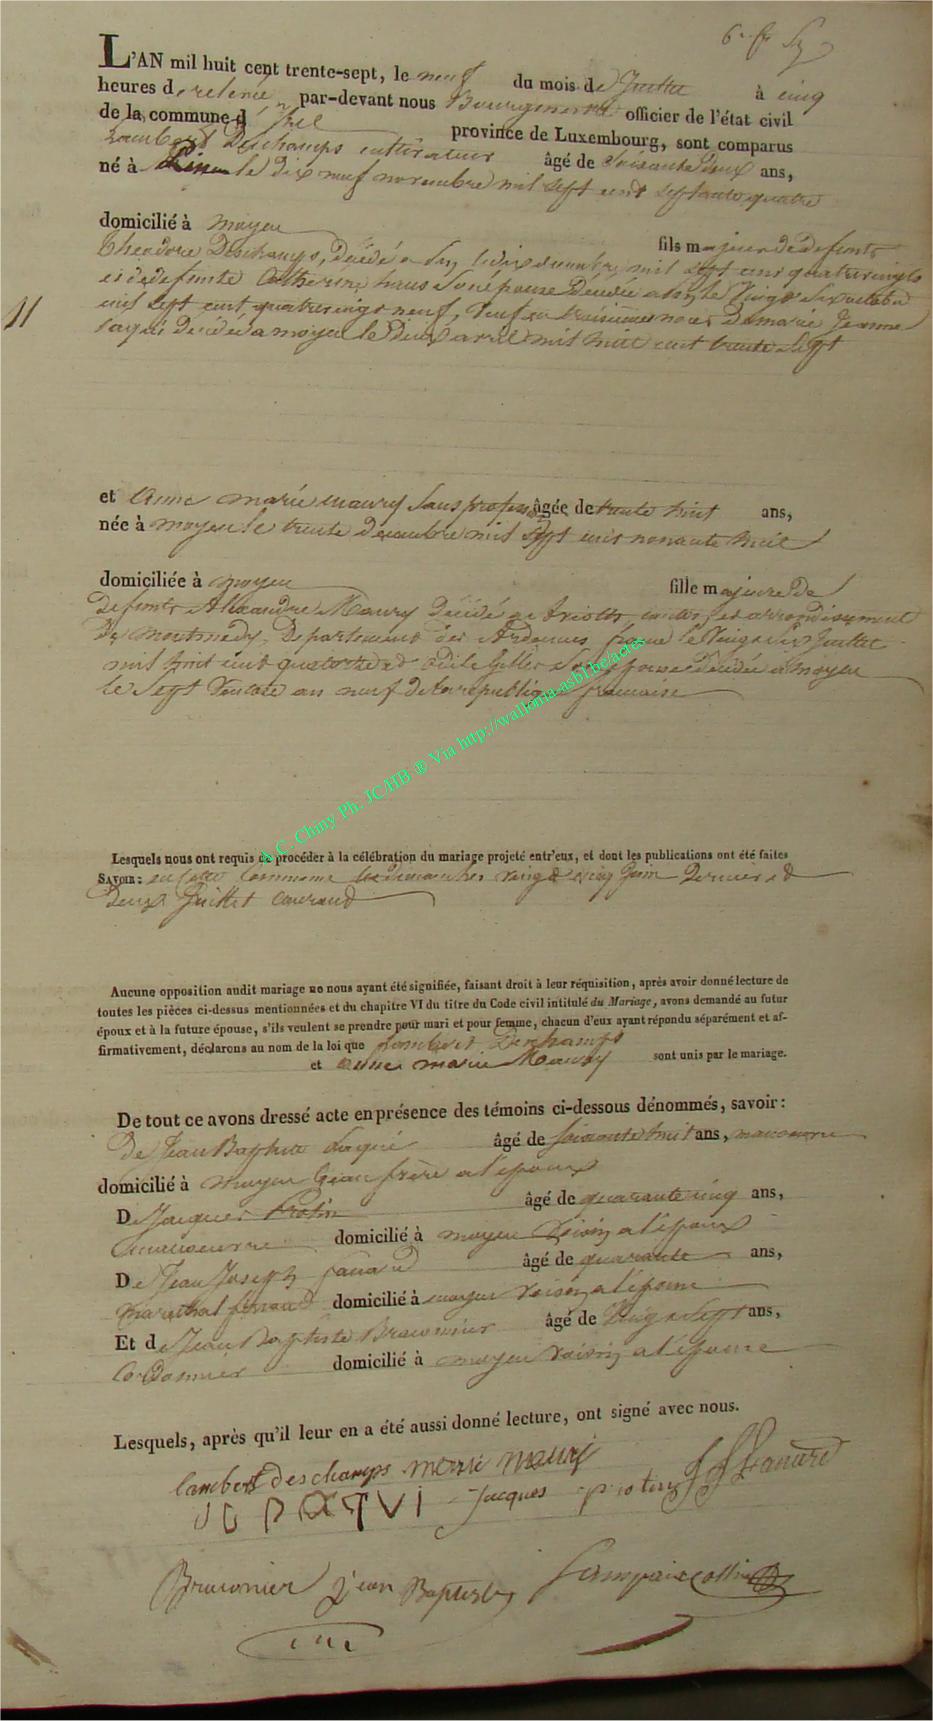 L'AN mil huit cent trente-sept, le neuf du mois de Juillet à cinq
heures de relevée par-devant nous Bourgmestre officier de l'état civil
de la commune d' province de Luxembourg, sont comparus
Lambert Deschamps cultivateur âgé de Soixante deux ans,
né à le dix neuf novembre mil sept cent septante quatre
domicilié à moyen
fils majeur de defunts
Theodore Deschamps, décédé a le dix decembre mil sept cent quatre vingts
et de defunte Catherine haus Son épouse Decedée a le Vingt Six octobre
11
mil sept cent quatre vingt neuf, Veuf en troisieme noces De marie Jeanne
décédée a moyen le Deux avril mil huit cent trente Sept
et Anne marie maury Sans profession âgée de trente huit ans,
née à moyen le trente Decembre mil Sept cent nonante huit
domiciliée à moyen
fille majeure de
defunts Alexandre Maury Décédé a canton et arrondissement
De montmedy, Departement des Ardennes france le Vingt Six Juillet
mil huit cent quatorze et Odile Gilles Son épouse Decedée a moyen
le Sept Ventose an neuf de la republique francaise
A.C. Chiny Ph. JC/HB ® Via http://wallonia-asbl.be/actes
Lesquels nous ont requis de procéder à la célébration du mariage projeté entr'eux, et dont les publications ont été faites
SAVOIR: en Cette Commune les dimanches vingt cinq Juin Dernier et
Deux Juillet Courant
Aucune opposition audit mariage ne nous ayant été signifiée, faisant droit à leur réquisition, après avoir donné lecture de
toutes les pièces ci-dessus mentionnées et du chapitre VI du titre du Code civil intitulé du Mariage, avons demandé au futur
époux et à la future épouse, s'ils veulent se prendre pour mari et pour femme, chacun d'eux ayant répondu séparément et af-
firmativement, déclarons au nom de la loi que Lambert Deschamps
et Anne marie Maury sont unis par le mariage.
De tout ce avons dressé acte en présence des témoins ci-dessous dénommés, savoir:
De Jean Baptiste âgé de Soixante huit ans, manoeuvre
domicilié à moyen beau frère a l'epoux
De Jacques Protin âgé de quarante cinq ans,
manoeuvre domicilié à moyen Voisin a l'époux
De Jean Joseph âgé de quarante ans,
marechal ferrand domicilié à moyen voisin a l'épouse
Et de Jean Baptiste Braconnier âgé de Vingt Sept ans,
Cordonnier domicilié à moyen voisin a l'épouse
Lesquels, après qu'il leur en a été aussi donné lecture, ont signé avec nous.
lambert deschamps marie mauri
Jacques protin
Braconier jean Baptiste